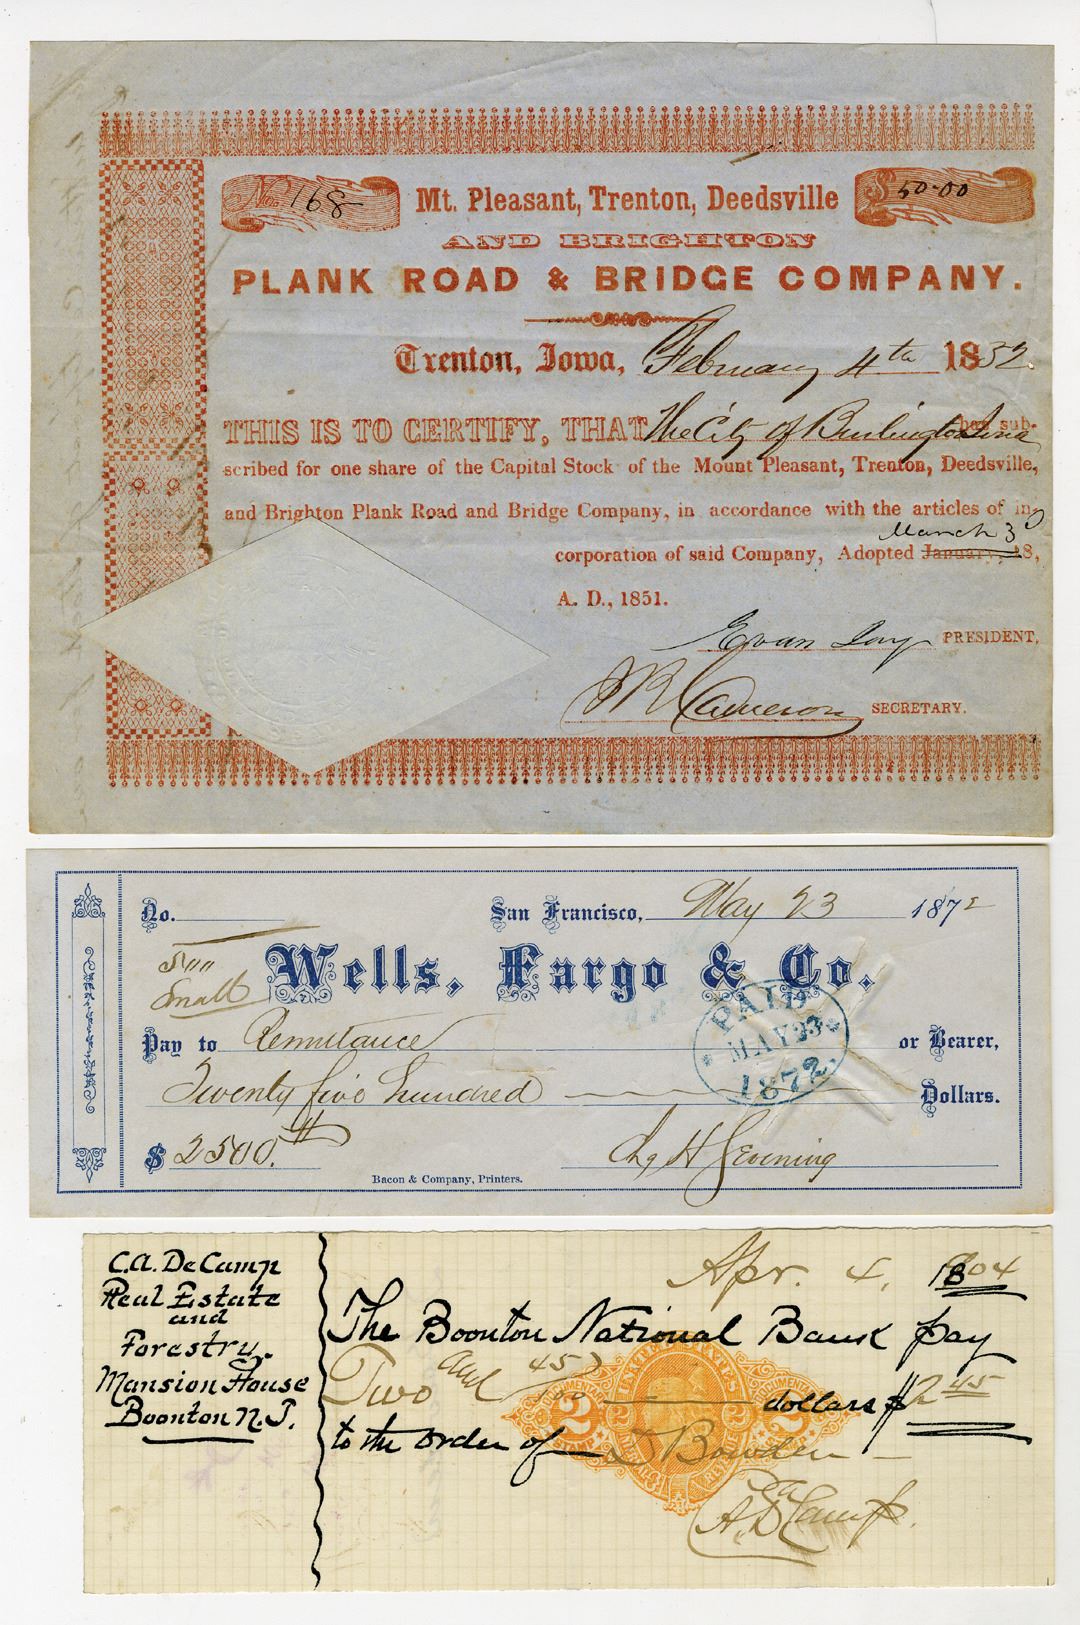 No. 168
Mt. Pleasant, Trenton, Deedsville
$ 50.00
AND BRIGHTON
PLANK ROAD & BRIDGE COMPANY.
Trenton, Iowa, February 4th 1852.
THIS IS TO CERTIFY, THAT The City of Burlington Iowa has sub-
scribed for one share of the Capital Stock of the Mount Pleasant, Trenton, Deedsville,
and Brighton Plank Road and Bridge Company, in accordance with the articles of in-
March 3
corporation of said Company, Adopted January, 18,
A. D., 1851.
Evan Jay PRESIDENT,
JR Cameron SECRETARY.
No.
San Francisco, May 23 1872
Small
Wells, Fargo & Co.
Pay to Remittance or Bearer,
PAID
MAY 23
1872
Twenty five hundred Dollars.
$ 2500.
Chs H
Bacon & Company, Printers.
C.A. DeCamp
Real Estate
and
Forestry.
Mansion House
Boonton N.J.
Apr. 4, 1904
The Boonton National Bank pay
Two and 45/00 dollars $2 45
to the order of Bowden
UNITED STATES
DOCUMENTARY
2 2
STAMP
A. DeCamp.